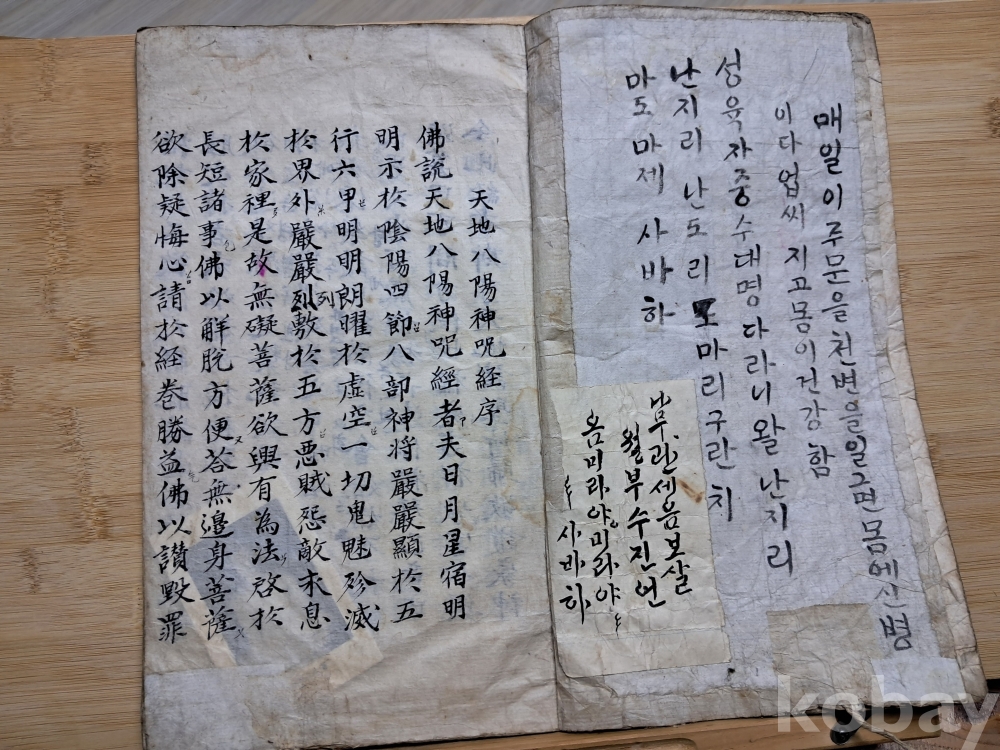 매일이주문을천변을일그면몸에신병
이다업씨지고몸이건강함
성육자중수대명다라니왈난지리
난지리난도리도마리구란치
마도마제사바하
나무관세음보살
월부수진언
옴미라야미라야
사바하
天地八陽神呪経序
佛說天地八陽神呪經者夫日月星宿明
明示於陰陽四節八部神将嚴嚴顯於五
行六甲明明朗曜於虛空一切鬼魅殄滅
於界外嚴嚴列敷於五方惡賊怨敵末息
列
於家裡是故無礙菩薩欲興有為法啓於
長短諸事佛以解脫方便答無邊身菩薩
欲除疑悔心請於経卷勝益佛以讃毀罪
kobay